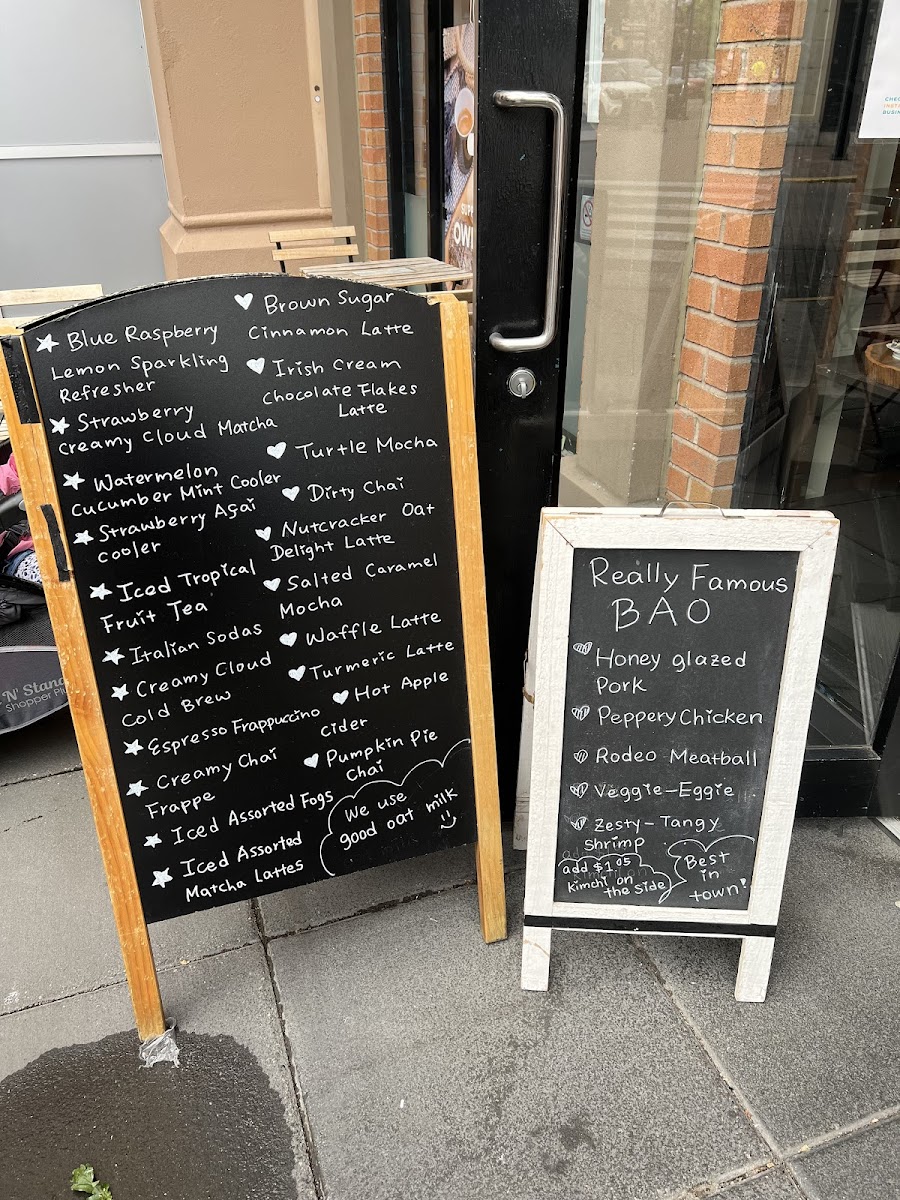 Blue Raspberry
Lemon Sparkling
Refresher
Strawberry
Creamy Cloud Matcha
Watermelon
Cucumber Mint Cooler
Strawberry Açai
cooler
Iced Tropical
Fruit Tea
Italian Sodas
Creamy Cloud
Cold Brew
Espresso Frappuccino
Creamy Chai
Frappe
Iced Assorted Fogs
Iced Assorted
Matcha Lattes
Brown Sugar
Cinnamon Latte
Irish Cream
Chocolate Flakes
Latte
Turtle Mocha
Dirty Chai
Nutcracker Oat
Delight Latte
Salted Caramel
Mocha
Waffle Latte
Turmeric Latte
Hot Apple
cider
Pumpkin Pie
Chai
We use
good oat milk
Really Famous
BAO
Honey glazed
Pork
Peppery Chicken
Rodeo Meatball
Veggie-Eggie
Zesty-Tangy
Shrimp
add $1.05
kimchi on
the side
Best
in
town!
N' Stand
Shopper